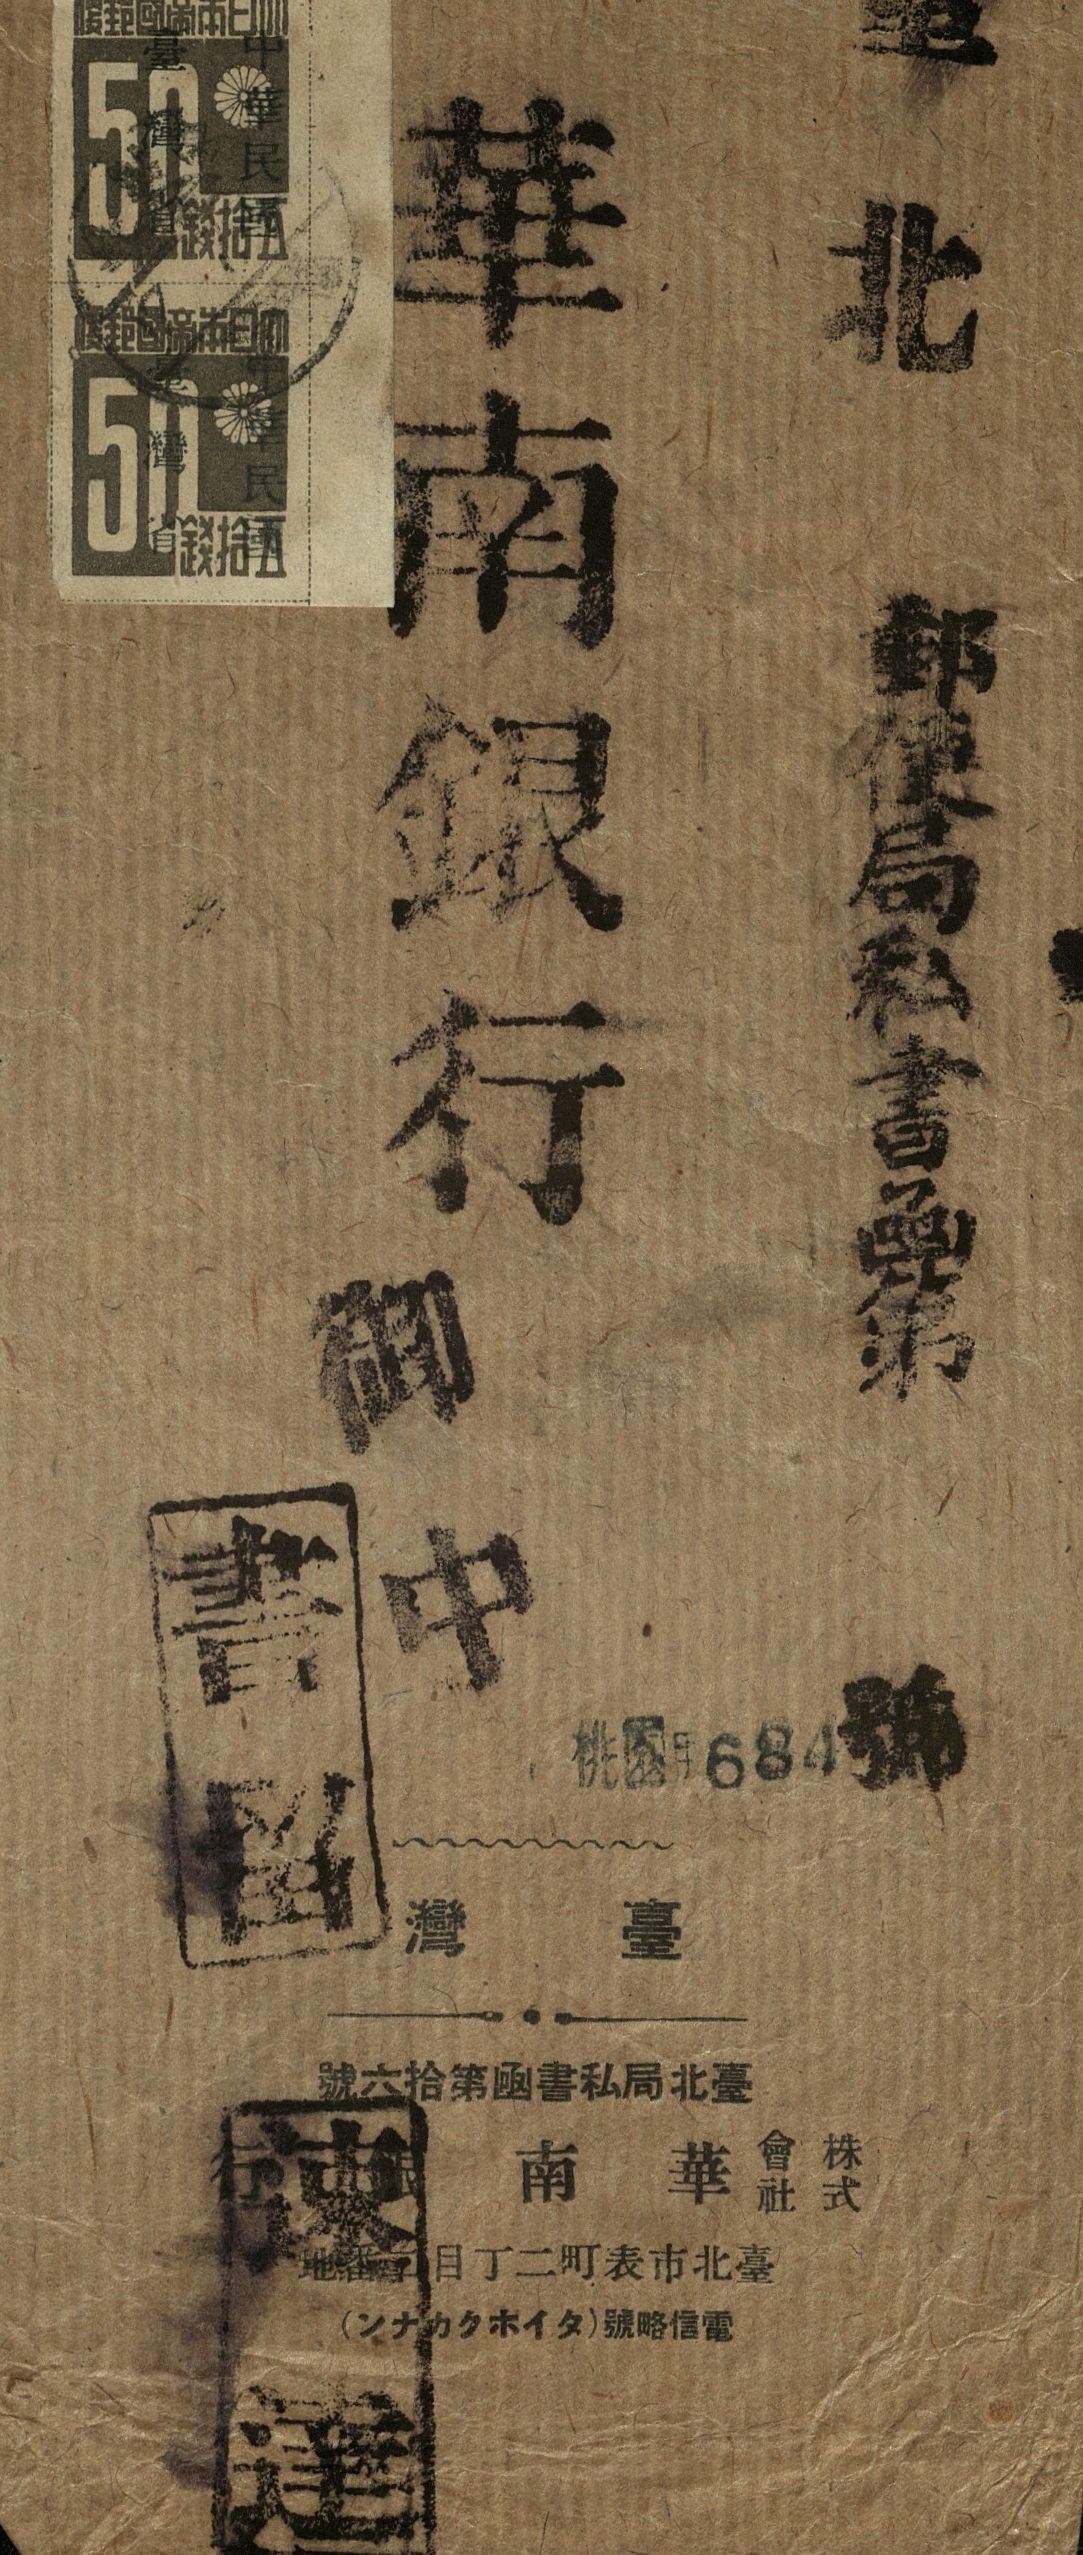 臺北
郵便局私書凾第
號
華南銀行
御中
大日本帝國郵便
50
五拾錢
中華民國
臺灣省
大日本帝國郵便
50
五拾錢
中華民國
臺灣省
書留
速達
桃園 684
臺灣
臺北局私書凾第拾六號
株式會社 華南銀行
臺北市表町二丁目二番地
電信略號(タイホクカナン)